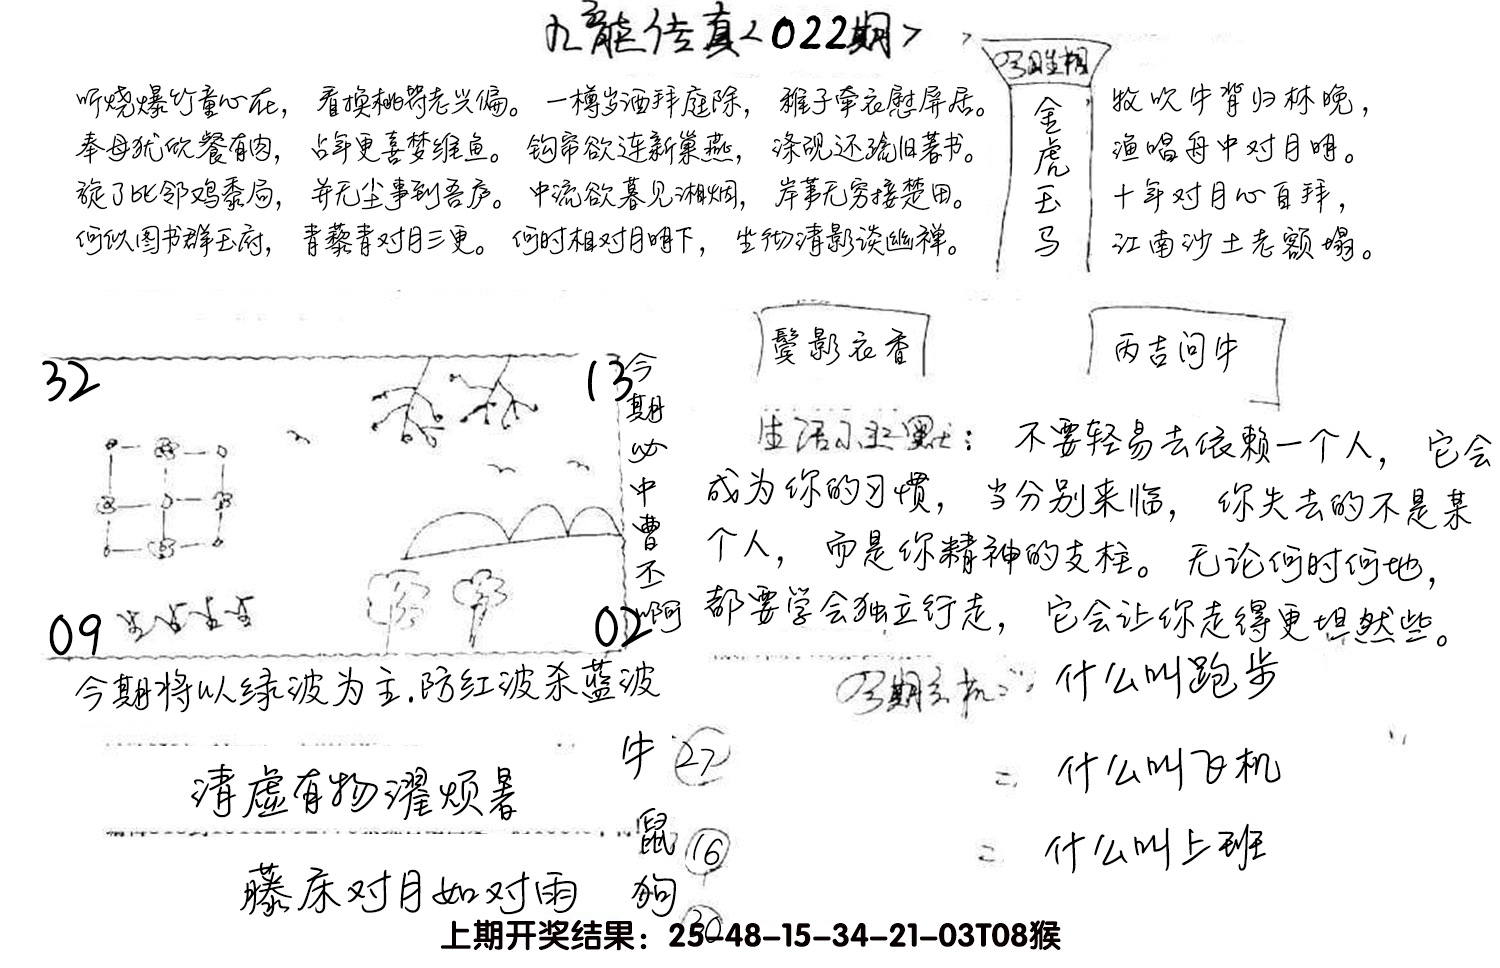 九龙传真<022期>
听烧爆竹童心在，看换桃符老兴偏。一樽岁酒拜庭除，稚子牵衣慰屏居。
奉母犹欣餐有肉，占年更喜梦维鱼。钩帘欲连新巢燕，涤砚还疏旧著书。
旋了比邻鸡黍局，并无尘事到吾庐。中流欲暮见湘烟，岸苇无穷接楚田。
何似图书群玉府，青藜青对月三更。何时相对月明下，坐彻清影谈幽禅。
今日生相
金
虎
玉
马
牧吹牛背归林晚，
渔唱舟中对月明。
十年对月心自拜，
江南沙土老额塌。
32
13
09
02
今
期
必
中
曹
不
啊
鬓影衣香
丙吉问牛
生活小幽默：不要轻易去依赖一个人，它会
成为你的习惯，当分别来临，你失去的不是某
个人，而是你精神的支柱。无论何时何地，
都要学会独立行走，它会让你走得更坦然些。
今期将以绿波为主.防红波杀蓝波
今期玄机：什么叫跑步
= 什么叫飞机
= 什么叫上班
清虚有物濯烦暑
藤床对月如对雨
牛 27
鼠 16
狗 30
上期开奖结果：25-48-15-34-21-03T08猴